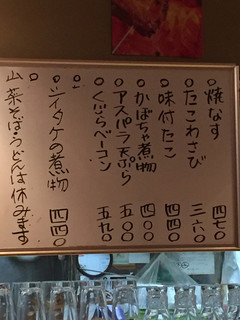 焼なす 四七〇
たこわさび 三六〇
味付たこ 四四〇
かぼちゃ煮物 四〇〇
アスパラ天ぷら 五〇〇
くじらベーコン 五九〇
シイタケの煮物 四四〇
山菜そば・うどんは休みます